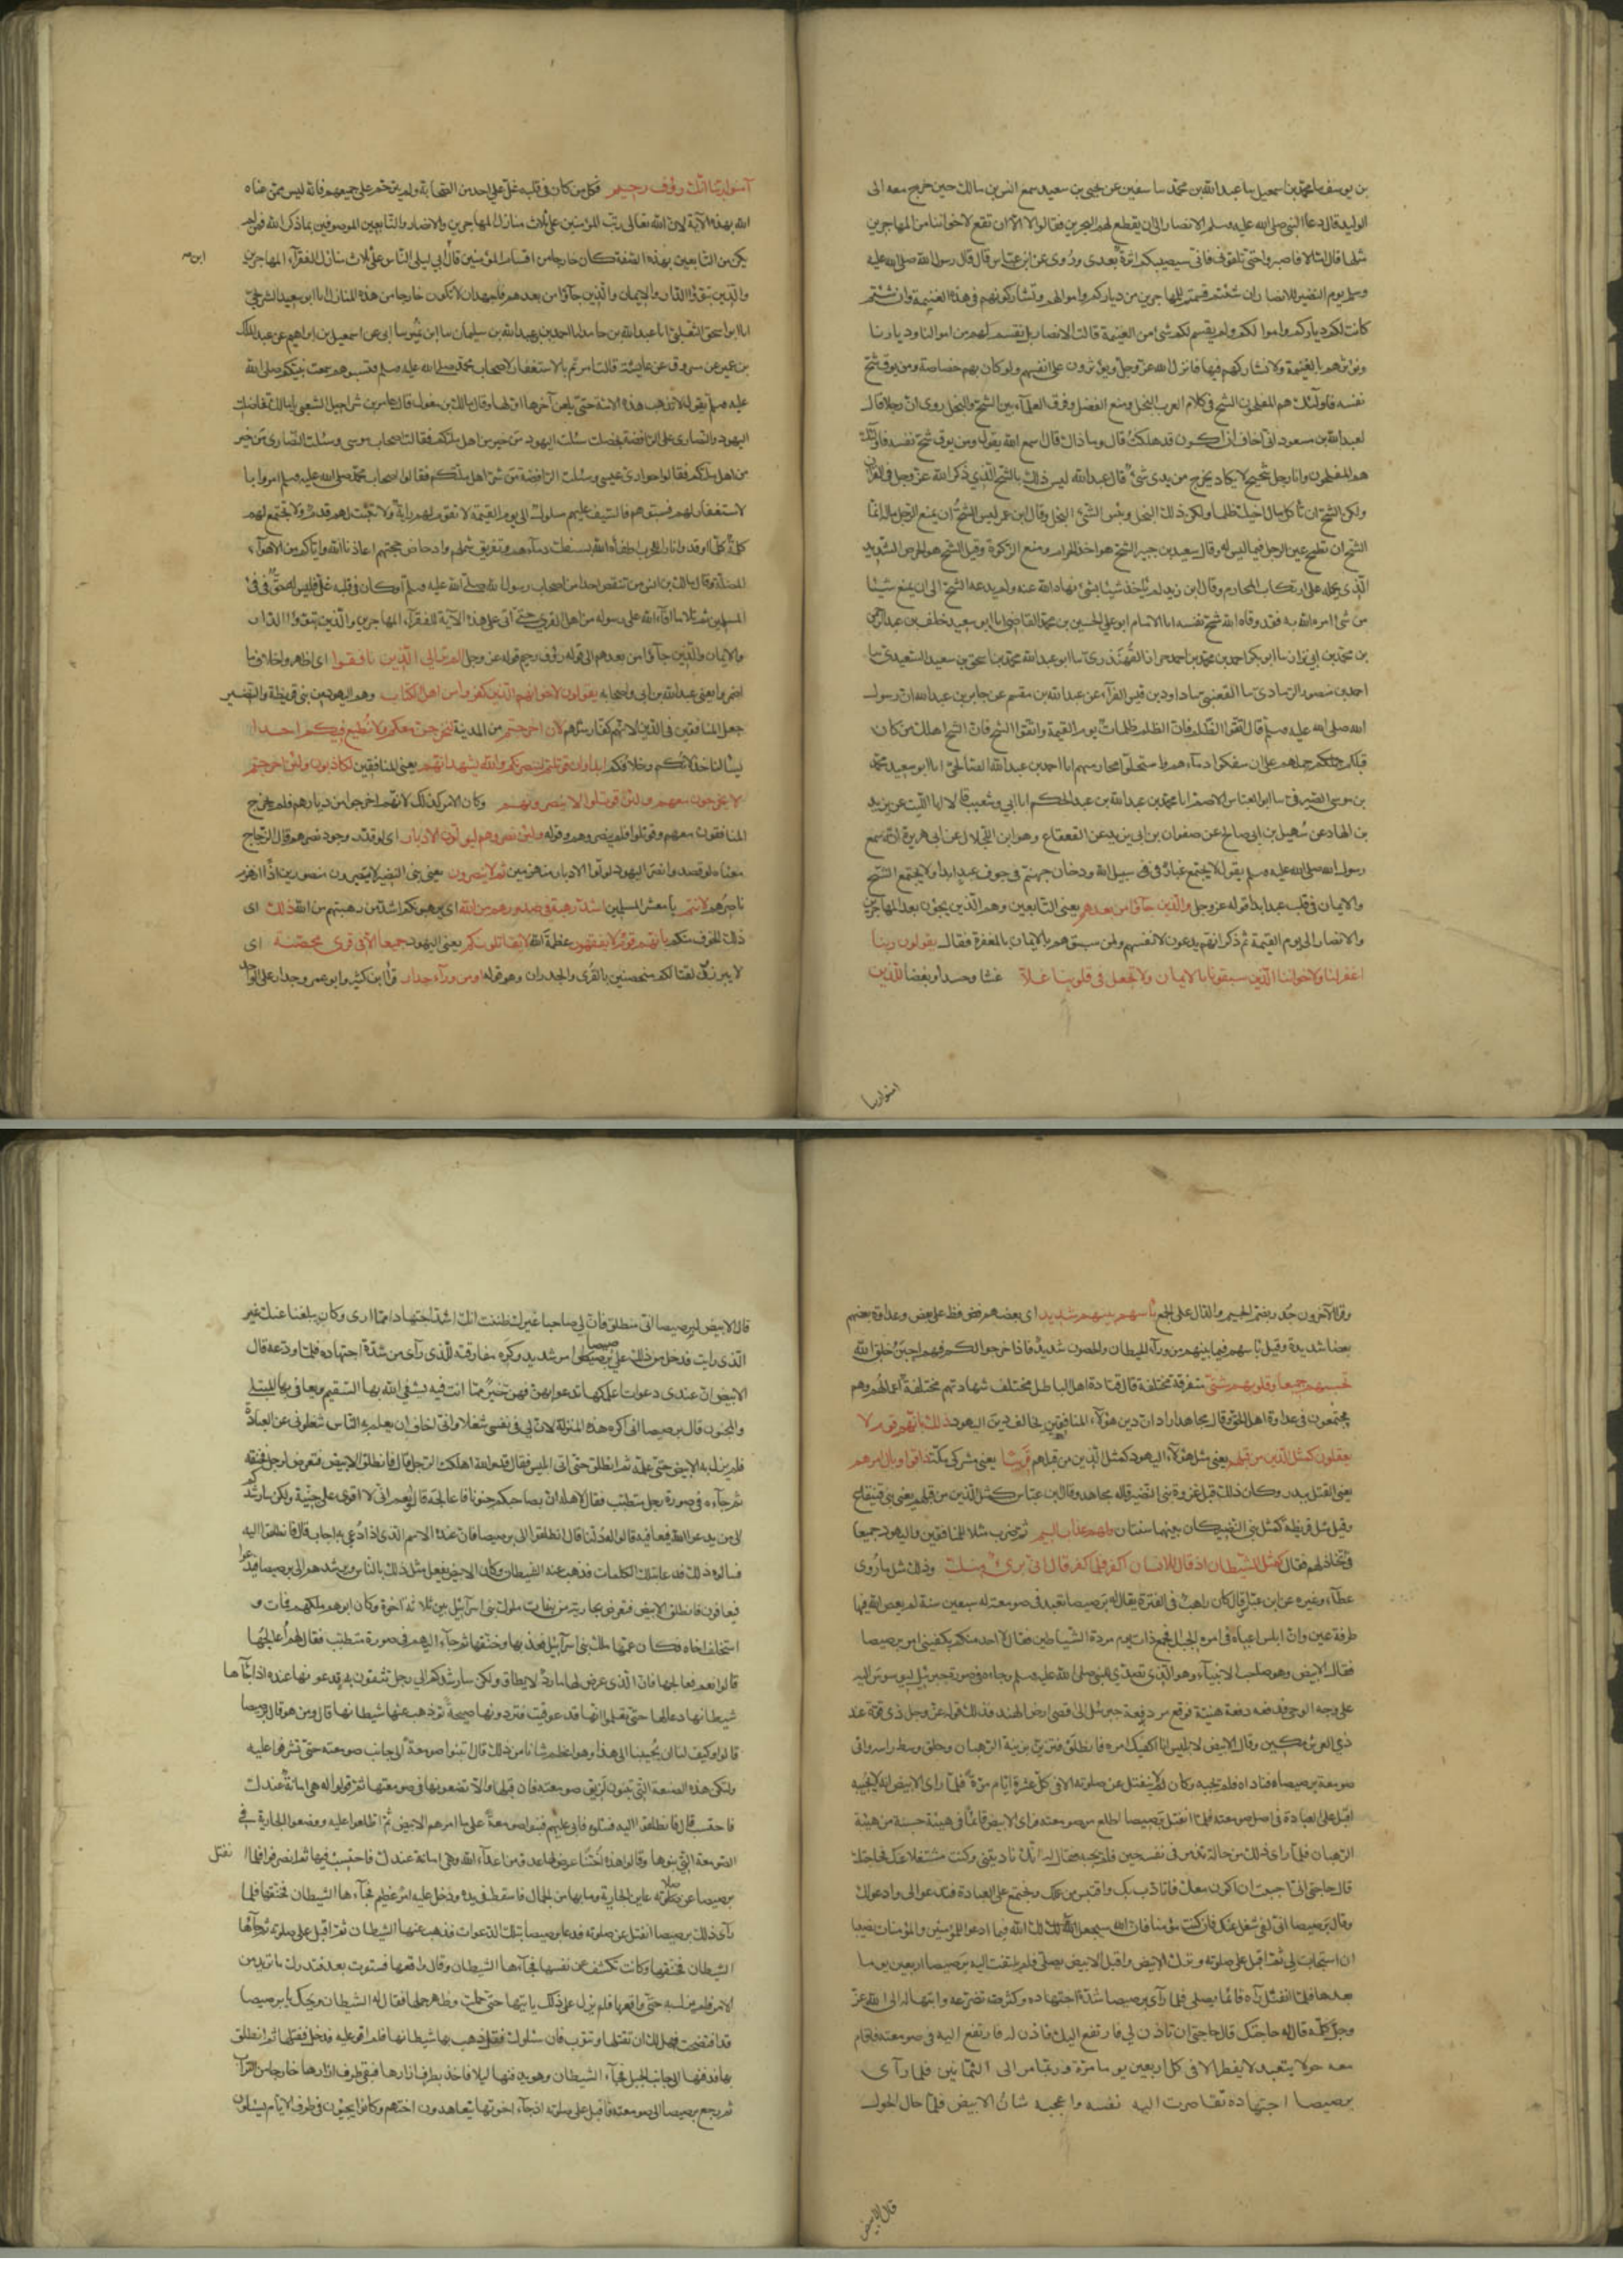 بن يوسف نا محمد بن اسمعيل نا عبد الله بن محمد نا سفين عن يحيى بن سعيد سمع انس بن مالك حين خرج معه الى
الوليد قال دعا النبي صلى الله عليه وسلم الانصار الى ان يقطع لهم البحرين فقالوا لا الا ان تقطع لاخواننا من المهاجرين
مثلها قال اما لا فاصبروا حتى تلقوني فانه سيصيبكم اثرة بعدي وروى عن ابن عباس قال قال رسول الله صلى الله عليه
وسلم يوم النضير للانصار ان شئتم قسمتم للمهاجرين من دياركم واموالكم وتشاركونهم في هذه الغنيمة وان شئتم
كانت لكم دياركم واموالكم ولم يقسم لكم شئ من الغنيمة قالت الانصار بل نقسم لهم من اموالنا وديارنا
ونؤثرهم بالغنيمة ولا نشاركهم فيها فانزل الله عز وجل ويؤثرون على انفسهم ولو كان بهم خصاصة ومن يوق شح
نفسه فاولئك هم المفلحون الشح في كلام العرب البخل ومنع الفضل وفرق العلماء بين الشح والبخل روى ان رجلا قال
لعبد الله بن مسعود اني اخاف ان اكون قد هلكت قال وما ذاك قال اسمع الله يقول ومن يوق شح نفسه فاولئك
هم المفلحون وانا رجل شحيح لا يكاد يخرج من يدي شئ قال عبد الله ليس ذلك بالشح الذي ذكر الله عز وجل في القرآن
ولكن الشح ان تأكل مال اخيك ظلما ولكن ذلك البخل وبئس الشئ البخل وقال ابن عمر ليس الشح ان يمنع الرجل ماله انما
الشح ان تطمح عين الرجل فيما ليس له وقال سعيد بن جبير الشح هو اخذ الحرام ومنع الزكوة وقيل الشح هو الحرص الشديد
الذي يحمله على ارتكاب المحارم وقال ابن زيد من لم ياخذ شيئا لشئ نهاه الله عنه ولم يدعه الشح الى ان يمنع شيئا
من شئ امره الله به فقد وقاه الله شح نفسه انا الامام ابو علي الحسين بن محمد القاضي انا ابو سعيد خلف بن عبد الرحمن
بن محمد بن ابي نزار نا ابو بكر احمد بن محمد بن احمد حرانا القهندزي نا ابو عبد الله محمد بن اسحق بن سعيد السعيدي نا
احمد بن منصور الرمادي نا القعنبي نا داود بن قيس الفراء عن عبد الله بن مقسم عن جابر بن عبد الله ان رسول
الله صلى الله عليه وسلم قال اتقوا الظلم فان الظلم ظلمات يوم القيمة واتقوا الشح فان الشح اهلك من كان
قبلكم حملهم على ان سفكوا دماءهم واستحلوا محارمهم انا احمد بن عبد الله الصالحي انا ابو سعيد محمد
بن موسى الصيرفي نا ابو العباس الاصم انا محمد بن عبد الله بن عبد الحكم انا ابي وشعيب قالا انا الليث عن يزيد
بن الهاد عن سهيل بن ابي صالح عن صفوان بن ابي يزيد عن القعقاع وهو ابن اللجلاج عن ابي هريرة انه سمع
رسول الله صلى الله عليه وسلم يقول لا يجتمع غبار في سبيل الله ودخان جهنم في جوف عبد ابدا ولا يجتمع الشح
والايمان في قلب عبد ابدا قوله عز وجل والذين جاؤا من بعدهم يعني التابعين وهم الذين يجيئون بعد المهاجرين
والانصار الى يوم القيمة ثم ذكر انهم يدعون لانفسهم ولمن سبقهم بالايمان بالمغفرة فقال يقولون ربنا
اغفر لنا ولاخواننا الذين سبقونا بالايمان ولا تجعل في قلوبنا غلا غشا وحسدا وبغضا للذين
امنوا ربنا
آمنوا ربنا انك رؤف رحيم فكل من كان في قلبه غل على احد من الصحابة ولم يترحم على جميعهم فانه ليس ممن عناه
الله بهذه الآية لان الله تعالى رتب المؤمنين على ثلاث منازل المهاجرين والانصار والتابعين الموصوفين بما ذكر الله فمن لم
يكن من التابعين بهذه الصفة كان خارجا من اقسام المؤمنين قال ابي ليلى الناس على ثلاث منازل الفقراء المهاجرين
ابن صح
والذين تبوؤا الدار والايمان والذين جاؤا من بعدهم فاجهد ان لا تكون خارجا من هذه المنازل انا ابو سعيد الشريحي
انا ابو اسحق الثعلبي انا عبد الله بن حامد انا احمد بن عبد الله بن سليمان نا ابن نمير نا ابي عن اسمعيل بن ابراهيم عن عبد الملك
بن عمير عن مسروق عن عايشة قالت امرتم بالاستغفار لاصحاب محمد صلى الله عليه وسلم فسببتموهم سمعت نبيكم صلى الله
عليه وسلم يقول لا تذهب هذه الامة حتى يلعن آخرها اولها وقال مالك بن مغول قال عامر بن شراحيل الشعبي يا مالك تفاضلت
اليهود والنصارى على الرافضة بخصلة سئلت اليهود من خير اهل ملتكم فقالت اصحاب موسى وسئلت النصارى من خير
من اهل ملتكم فقالوا حواري عيسى وسئلت الرافضة من شر اهل ملتكم فقالوا اصحاب محمد صلى الله عليه وسلم امروا با
لاستغفار لهم فسبوهم فالسيف عليهم مسلول الى يوم القيمة لا تقوم لهم راية ولا تثبت لهم قدم ولا تجتمع لهم
كلمة كلما اوقدوا نارا للحرب اطفأه الله بسفك دمائهم وتفريق شملهم وادحاض حجتهم اعاذنا الله واياكم من الاهواء
المضلة وقال مالك بن انس من تنقص احدا من اصحاب رسول الله صلى الله عليه وسلم او كان في قلبه غل فليس له حق في فئ
المسلمين ثم تلا ما افاء الله على رسوله من اهل القرى حتى أتى على هذه الآية للفقراء المهاجرين والذين تبوؤا الدار
والايمان والذين جاؤا من بعدهم الى قوله رؤف رحيم قوله عز وجل الم تر الى الذين نافقوا اي اظهروا خلاف ما
اضمروا يعني عبد الله بن ابي واصحابه يقولون لاخوانهم الذين كفروا من اهل الكتاب وهم اليهود من بني قريظة والنضير
جعل المنافقين في الدين لانهم كفار مثلهم لئن اخرجتم من المدينة لنخرجن معكم ولا نطيع فيكم احدا
يسالنا خذلانكم وخلافكم ابدا وان قوتلتم لننصرنكم والله يشهد انهم يعني المنافقين لكاذبون ولئن اخرجتم
لا يخرجون معهم ولئن قوتلوا لا ينصرونهم وكان الامر كذلك لانهم اخرجوا من ديارهم فلم يخرج
المنافقون معهم وقوتلوا فلم ينصروهم وقوله ولئن نصروهم ليولون الادبار اي لو قدر وجود نصرهم قال الزجاج
معناه لو قصدوا نصر اليهود لولوا الادبار منهزمين ثم لا ينصرون يعني بني النضير لا يصيرون منصورين اذا انهزم
ناصرهم لانتم يا معشر المسلمين اشد رهبة في صدورهم من الله اي يرهبونكم اشد من رهبتهم من الله ذلك اي
ذلك الخوف منكم بانهم قوم لا يفقهون عظمة الله لا يقاتلونكم يعني اليهود جميعا الا في قرى محصنة اي
لا يبرزون لقتالكم متحصنين بالقرى والجدران وهو قوله او من وراء جدار قرأ ابن كثير وابو عمرو جدار على الواحد
وقرأ الآخرون جدر بضم الجيم والدال على الجمع بأسهم بينهم شديد اي بعضهم فض فظ على بعض وعداوة بعضهم
بعضا شديدة وقيل بأسهم فيما بينهم من وراء الحيطان والحصون شديد فاذا خرجوا لكم فهم اجبن خلق الله
تحسبهم جميعا وقلوبهم شتى متفرقة مختلفة قال قتادة اهل الباطل مختلف شهادتهم مختلفة اعمالهم وهم
مجتمعون في عداوة اهل الحق وقال مجاهد اراد ان دين هؤلاء المنافقين يخالف دين اليهود ذلك بانهم قوم لا
يعقلون كمثل الذين من قبلهم يعني مثل هؤلاء اليهود كمثل الذين من قبلهم قريبا يعني مشركي مكة ذاقوا وبال امرهم
يعني القتل ببدر وكان ذلك قبل غزوة بني النضير قاله مجاهد وقال ابن عباس كمثل الذين من قبلهم يعني بني قينقاع
وقيل مثل قريظة كمثل بني النضير كان بينهما سنتان ولهم عذاب اليم ثم ضرب مثلا للمنافقين واليهود جميعا
في تخاذلهم فقال كمثل الشيطان اذ قال للانسان اكفر فلما كفر قال اني برئ منك وذلك مثل ما روى
عطاء وغيره عن ابن عباس قال كان راهب في الفترة يقال له برصيصا تعبد في صومعته له سبعين سنة لم يعص الله فيها
طرفة عين وان ابليس اعياه في امره الحيل فجمع ذات يوم مردة الشياطين فقال الا احد منكم يكفيني امر برصيصا
فقال الابيض وهو صاحب الانبياء وهو الذي تصدى للنبي صلى الله عليه وسلم وجاءه في صورة جبرئيل ليوسوس اليه
على وجه الوحي فدفعه دفعة هينة فوقع من دفعة جبرئيل الى اقصى ارض الهند فذلك قوله عز وجل ذي قوة عند
ذي العرش مكين وقال الابيض لابليس انا اكفيك امره فانطلق فتزين بزينة الرهبان وحلق وسط راسه واتى
صومعة برصيصا فناداه فلم يجبه وكان لا ينفتل عن صلوته الا في كل عشرة ايام مرة فلما رأى الابيض انه لا يجيبه
اقبل على العبادة في اصل صومعته فلما انفتل برصيصا اطلع من صومعته فراى الابيض قائما في هيئة حسنة من هيئة
الرهبان فلما راى ذلك من حاله تندم في نفسه حين فلم يجبه فقال له انك ناديتني وكنت مشتغلا عنك فما حاجتك
قال حاجتي اني احببت ان اكون معك فاتادب بك واقتبس من علمك ونجتمع على العبادة فتدعو لي وادعو لك
وقال برصيصا اني لفي شغل عنك فان كنت مؤمنا فان الله سيجعل لك فيما ادعو للمؤمنين والمؤمنات نصيبا
ان استجاب لي ثم اقبل على صلوته وترك الابيض واقبل الابيض يصلي فلم يلتفت اليه برصيصا اربعين يوما
بعدها فلما انفتل رآه قائما يصلي فلما رأى برصيصا شدة اجتهاده وكثرة تضرعه وابتهاله الى الله عز
وجل كلمه قال له حاجتك قال حاجتي ان تاذن لي فارتفع اليك فاذن له فارتفع اليه في صومعته فاقام
معه حولا يتعبد لا يفطر الا في كل اربعين يوما مرة وربما مر الى الثمانين فلما رآى
برصيصا اجتهاده تقاصرت اليه نفسه واعجبه شان الابيض فلما حال الحول
قال الابيض
قال الابيض لبرصيصا اني منطلق فان لي صاحبا غيرك ظننت انك اشد اجتهادا مما ارى وكان يبلغنا عنك غير
الذي رايت فدخل من ذلك على برصيصا امر شديد وكره مفارقته للذي رأى من شدة اجتهاده فلما ودعه قال
الابيض ان عندي دعوات اعلمكها تدعو بهن فهن خير مما انت فيه يشفي الله بها السقيم ويعافي بها المبتلى
والمجنون قال برصيصا اني اكره هذه المنزلة لان لي في نفسي شغلا واني اخاف ان يعلم به الناس شغلوني عن العبادة
فلم يزل به الابيض حتى علمه ثم انطلق حتى اتى ابليس فقال قد والله اهلكت الرجل قال فانطلق الابيض فتعرض لرجل فخنقه
ثم جاءه في صورة رجل متطبب فقال لاهله ان بصاحبكم جنونا فاعالجه قالوا نعم فقال اني لا اقوى على جنية ولكن سارشدكم
الى من يدعو الله فيعافيه قالوا دلنا قال انطلقوا الى برصيصا فان عنده الاسم الذي اذا دعي به اجاب قال فانطلقوا اليه
فسالوه ذلك فدعا بتلك الكلمات فذهب عنه الشيطان وكان الابيض يفعل مثل ذلك بالناس ويرشدهم الى برصيصا فيدعو
فيعافون فانطلق الابيض فتعرض بجارية من بنات ملوك بني اسرآئيل بين ثلاثة اخوة وكان ابوهم ملكهم فمات و
استخلف اخاه فكان عمها ملك بني اسرآئيل فعذبها وخنقها ثم جاء اليهم في صورة متطبب فقال لهم اعالجها
قالوا نعم فعالجها فان الذي عرض لها مارد لا يطاق ولكن سارشدكم الى رجل تثقون به تدعونها عنده اذا جاءها
شيطانها دعا لها حتى تعلموا انها قد عوفيت فتردونها صحيحة قد ذهب عنها شيطانها قال ومن هو قال برصيصا
قالوا وكيف لنا ان يجيبنا الى هذا وهو اعظم شانا من ذلك قال ابنوا صومعة الى جانب صومعته حتى تشرفوا عليه
ولتكن هذه الصومعة التي تبنون لزيق صومعته فان قبلها والا تضعونها في صومعتها ثم قولوا له هي امانة عندك
فاحتسب قال فانطلقوا اليه فسئلوه فابى عليهم فبنوا صومعة على ما امرهم الابيض ثم اطلعوا عليه ووضعوا الجارية في
الصومعة التي بنوها وقالوا هذه اختنا عرض لها عدو من اعداء الله وهي امانة عندك فاحتسب فيها ثم انصرفوا فلما انفتل
برصيصا عن صلوته عاين الجارية وما بها من الجمال فاسقط في يده ودخل عليه امر عظيم فجاءها الشيطان فخنقها فلما
رأى ذلك برصيصا انفتل عن صلوته فدعا برصيصا بتلك الدعوات فذهب عنها الشيطان ثم اقبل على صلوته ثم جاءها
الشيطان فخنقها وكانت تكشف عن نفسها فجاءها الشيطان وقال واقعها فستتوب بعد فتدرك ما تريد من
الامر فلم يزل به حتى واقعها فلم يزل على ذلك ياتيها حتى حملت وظهر حملها فقال له الشيطان ويحك يا برصيصا
قد افتضحت فهل لك ان تقتلها وتتوب فان سئلوك فقل ذهب بها شيطانها فلم اقو عليه فدخل فقتلها ثم انطلق
بها فدفنها الى جانب الجبل فجاء الشيطان وهو يدفنها ليلا فاخذ بطرف ازارها فبقي طرف ازارها خارجا من التراب
ثم رجع برصيصا الى صومعته فاقبل على صلوته اذ جاء اخوتها يتعاهدون اختهم وكانوا يجيئون في طرف الايام يسئلون